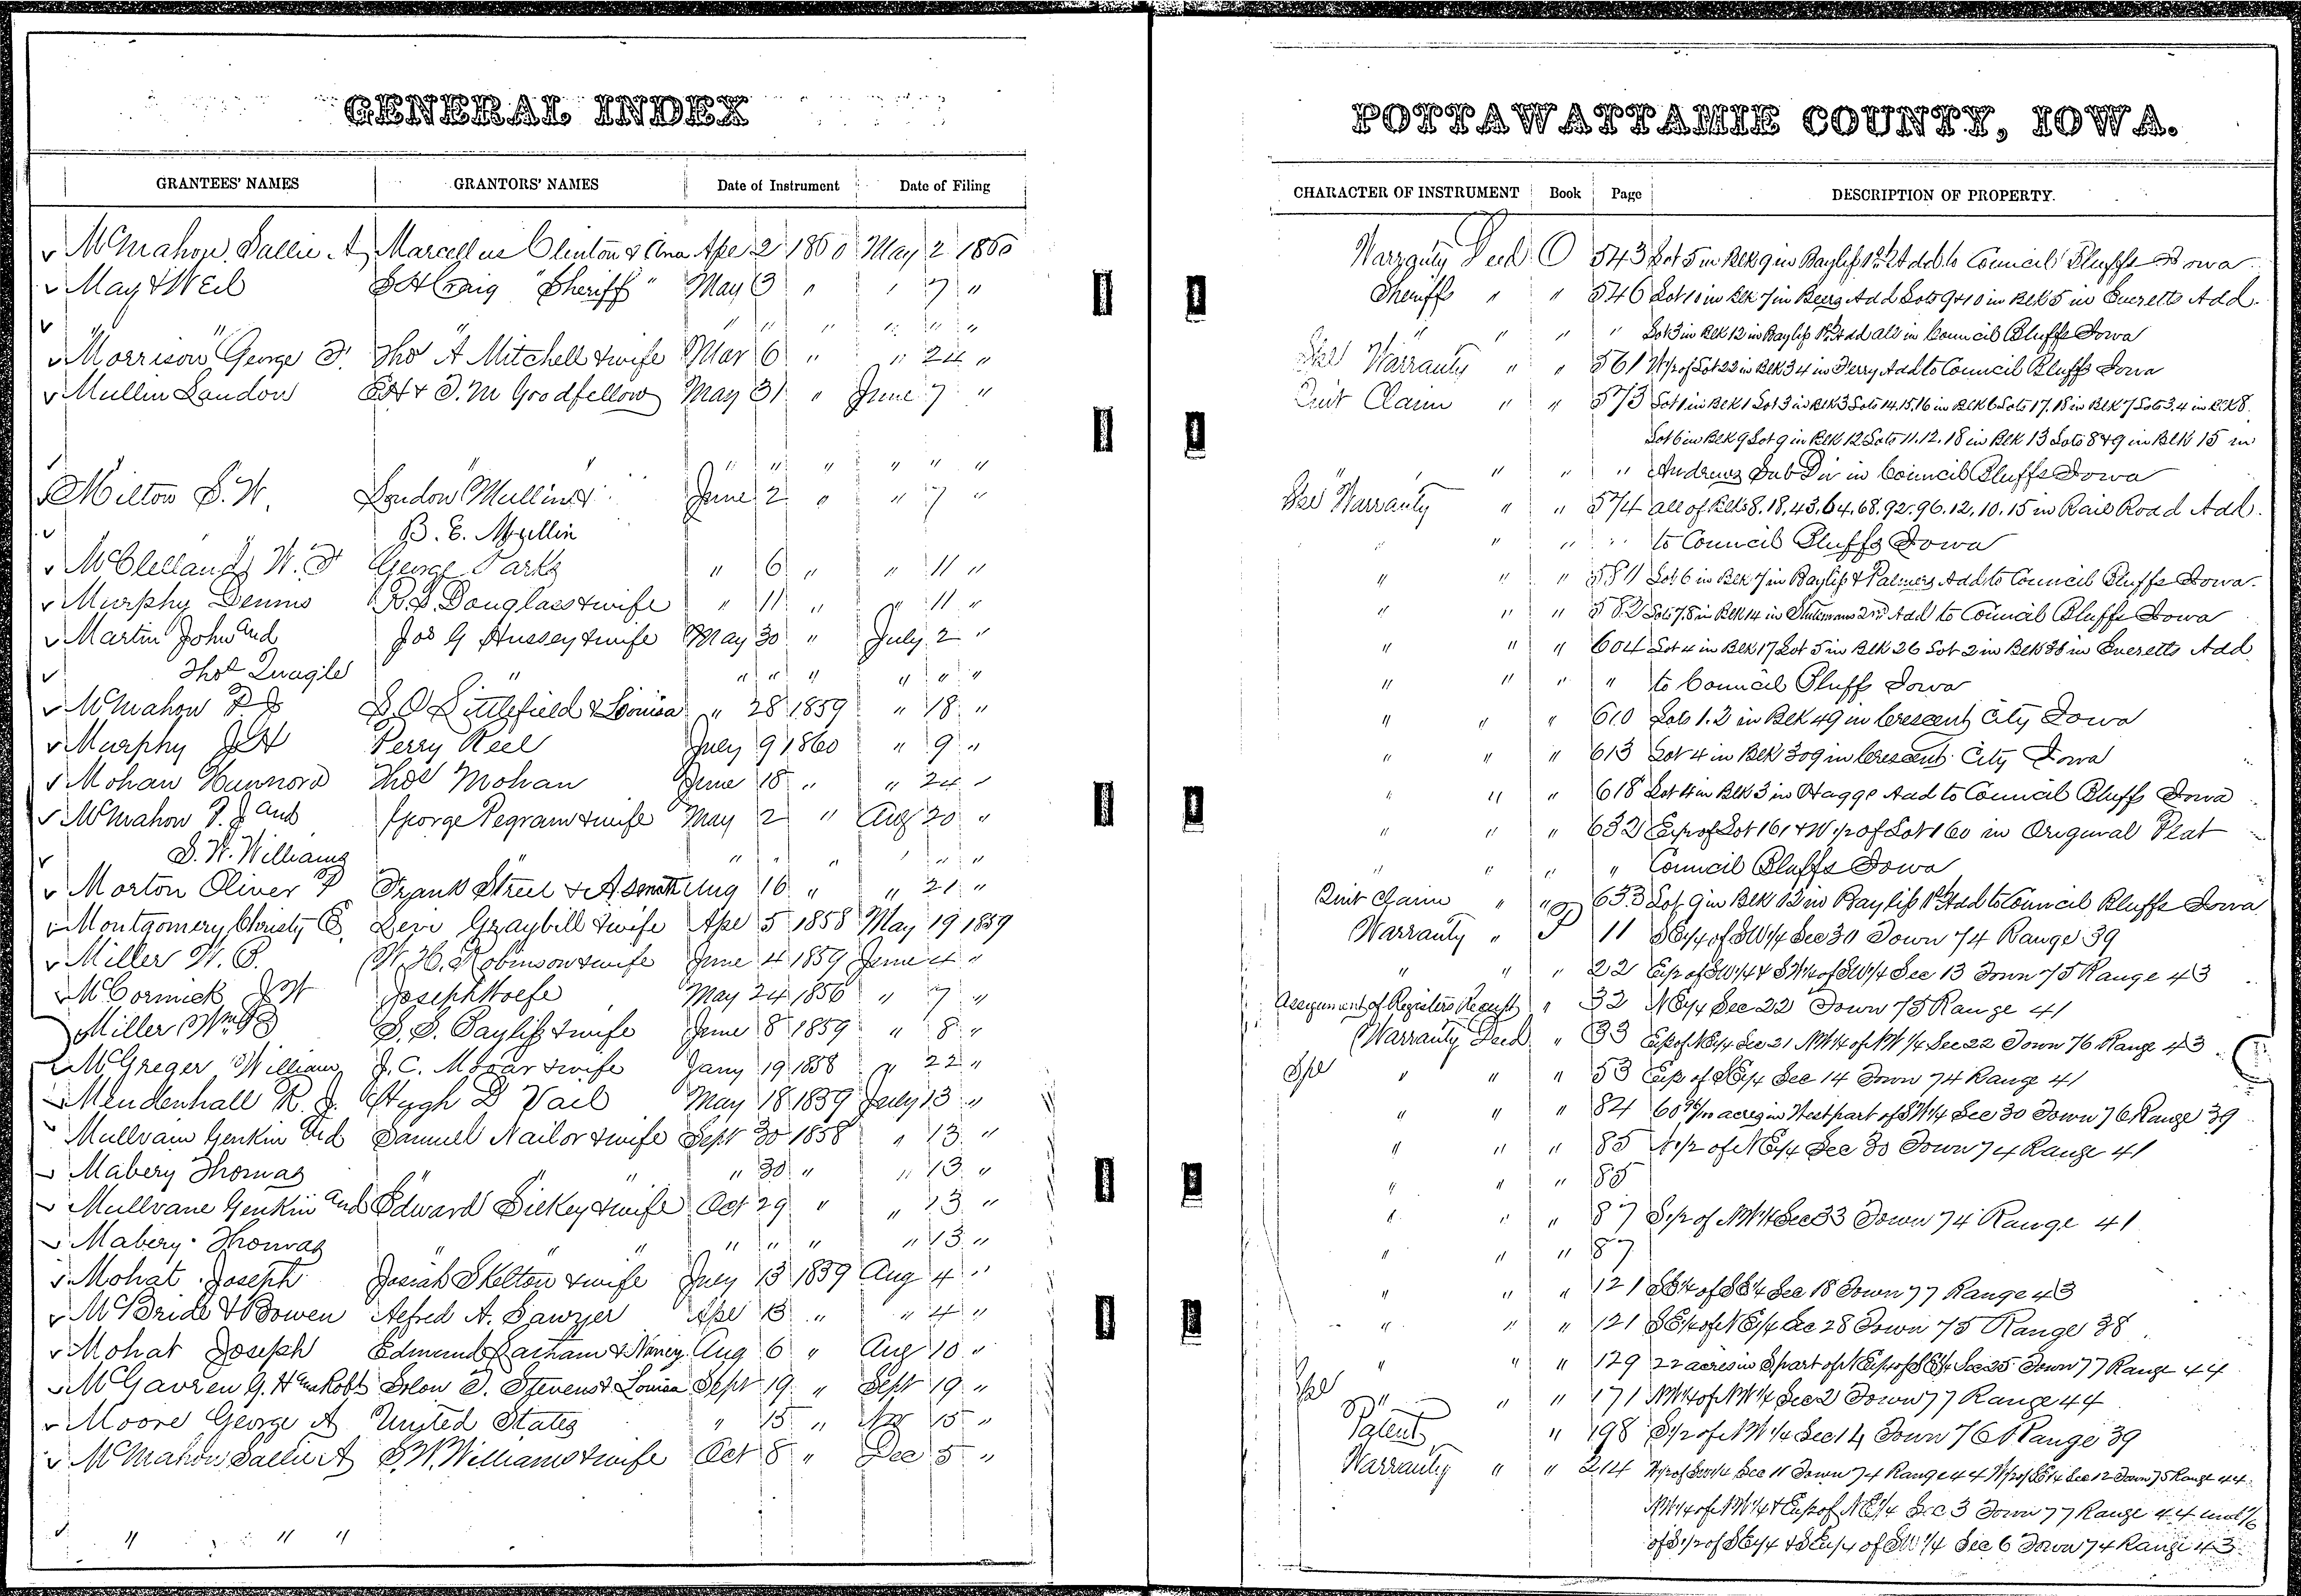 GENERAL INDEX
GRANTEES' NAMES GRANTORS' NAMES Date of Instrument Date of Filing
McMahon, Sallie A Marcellus Clinton & Ana Apl 2 1860 May 2 1860
May & Weil S H Craig "Sheriff" May 3 " " 7 "
" " " " " " " "
Morrison George F. Tho^s A Mitchell & wife Mar 6 " " 24 "
Mullin Landon & T. M Goodfellow May 31 " June 7 "
" " " " " "
Milton S. W. London Mullin & June 2 " " 7 "
B. E. Mullin
McClelland W. F George Parks " 6 " " 11 "
Murphy Dennis R. S. Douglass & wife " 11 " " 11 "
Martin John and Jos G Hussey & wife May 30 " July 2 "
Tho^s Quagle " " " " " " "
McMahon P J S. O Littlefield & Louisa " 28 1859 " 18 "
Murphy J H Perry Reel July 9 1860 " 9 "
Mohan Hannora Tho^s Mohan June 18 " " 24 "
McMahon P. J and George Pegram & wife May 2 " Aug 20 "
S. W. Williams " " " " " "
Morton Oliver P Frank Street & A Smith Aug 16 " " 21 "
Montgomery Christy C. Levi Graybill & wife Apl 5 1858 May 19 1859
Miller W. P. W. H. Robinson & wife June 4 1859 June 4 "
McCormick J W Joseph May 24 1856 " 7 "
Miller Wm S. S. Bayliss & wife June 8 1859 " 8 "
McGreger William J. C. & wife Jany 19 1858 " 22 "
Mendenhall R. J. Hugh D Vail May 18 1859 July 13 "
Mullvain Genkin and Samuel Nailor & wife Sept 30 1858 " 13 "
Mabery Thomas " " " 30 " " 13 "
Mullvane Genkin and Edward Dickey & wife Oct 29 " " 13 "
Mabery Thomas " " " " " " 13 "
Mohat Joseph Josiah Skelton & wife July 13 1859 Aug 4 "
McBride & Bowen Alfred A. Sawyer Apl 13 " " 4 "
Mohat Joseph Edmund Latham & Nancy Aug 6 " Aug 10 "
McGavren G. H Solon T. Stevens & Louisa Sept 19 " Sept 19 "
Moore George A United States " 15 " Nov 15 "
McMahon Sallie A S. W. Williams & wife Oct 8 " Dec 5 "
" " "
POTTAWATTAMIE COUNTY, IOWA.
CHARACTER OF INSTRUMENT Book Page DESCRIPTION OF PROPERTY.
Warranty Deed O 543 Lot 5 in Blk 9 in Bayliss 1st Add to Council Bluffs Iowa
Sheriffs " " 546 Lot 10 in Blk 7 in Beers Add Lots 9 & 10 in Blk 5 in Everetts Add.
" " " " Lot 3 in Blk 12 in Bayliss 1st Add all in Council Bluffs Iowa
Spel Warranty " " 561 W 1/2 of Lot 22 in Blk 34 in Ferry Add to Council Bluffs Iowa
Quit Claim " " 573 Lot 1 in Blk 1 Lot 3 in Blk 3 Lots 14.15.16 in Blk 6 Lots 17.18 in Blk 7 Lots 3.4 in Blk 8.
Lot 6 in Blk 9 Lot 9 in Blk 12 Lots 11.12.18 in Blk 13 Lots 8 & 9 in Blk 15 in
" " " " Andrews Sub Div in Council Bluffs Iowa
Spel Warranty " " 574 all of Blks 8.18.43.64.68.92.96.12.10.15 in Rail Road Add.
" " " to Council Bluffs Iowa
" " " 581 Lot 6 in Blk 7 in Bayliss & Palmers Add to Council Bluffs Iowa.
" " " 582 Lots 7.8 in Blk 14 in Stutsmans 2nd Add to Council Bluffs Iowa
" " " 604 Lot 4 in Blk 17 Lot 5 in Blk 26 Lot 2 in Blk 38 in Everetts Add
" " " " to Council Bluffs Iowa
" " " 610 Lots 1.2 in Blk 49 in Crescent City Iowa
" " " 613 Lot 4 in Blk 309 in Crescent City Iowa
" " " 618 Lot 4 in Blk 3 in Haggs Add to Council Bluffs Iowa
" " " 632 E 1/2 of Lot 161 & W 1/2 of Lot 160 in Original Plat
" " " " Council Bluffs Iowa
Quit Claim " " 633 Lot 9 in Blk 12 in Bayliss 1st Add to Council Bluffs Iowa
Warranty " P 11 SE 1/4 of SW 1/4 Sec 30 Town 74 Range 39
" " " 22 E 1/2 of SW 1/4 & SW 1/4 of SW 1/4 Sec 13 Town 75 Range 43
Assignment of Registers Receipt " 32 NE 1/4 Sec 22 Town 75 Range 41
Warranty Deed " 33 E 1/2 of NE 1/4 Sec 21 NW 1/4 of NW 1/4 Sec 22 Town 76 Range 43
Spe " " " 53 E 1/2 of SE 1/4 Sec 14 Town 74 Range 41
" " " 84 60 acres in West part of SW 1/4 Sec 30 Town 76 Range 39
" " " 85 N 1/2 of NE 1/4 Sec 30 Town 74 Range 41
" " " 85
" " " 87 S 1/2 of NW 1/4 Sec 33 Town 74 Range 41
" " " 87
" " " 121 SE 1/4 of SE 1/4 Sec 18 Town 77 Range 43
" " " 121 SE 1/4 of NE 1/4 Sec 28 Town 75 Range 38
" " " 129 22 acres in S part of NE 1/4 of SE 1/4 Sec 25 Town 77 Range 44
Spe " " " 171 NW 1/4 of NW 1/4 Sec 2 Town 77 Range 44
Patent " 198 S 1/2 of NW 1/4 Sec 14 Town 76 Range 39
Warranty " " 214 N 1/2 of SW 1/4 Sec 11 Town 74 Range 44 W 1/2 of SE 1/4 Sec 12 Town 75 Range 44
NW 1/4 of NW 1/4 & E 1/2 of NE 1/4 Sec 3 Town 77 Range 44
of S 1/2 of SE 1/4 & SE 1/4 of SW 1/4 Sec 6 Town 74 Range 43